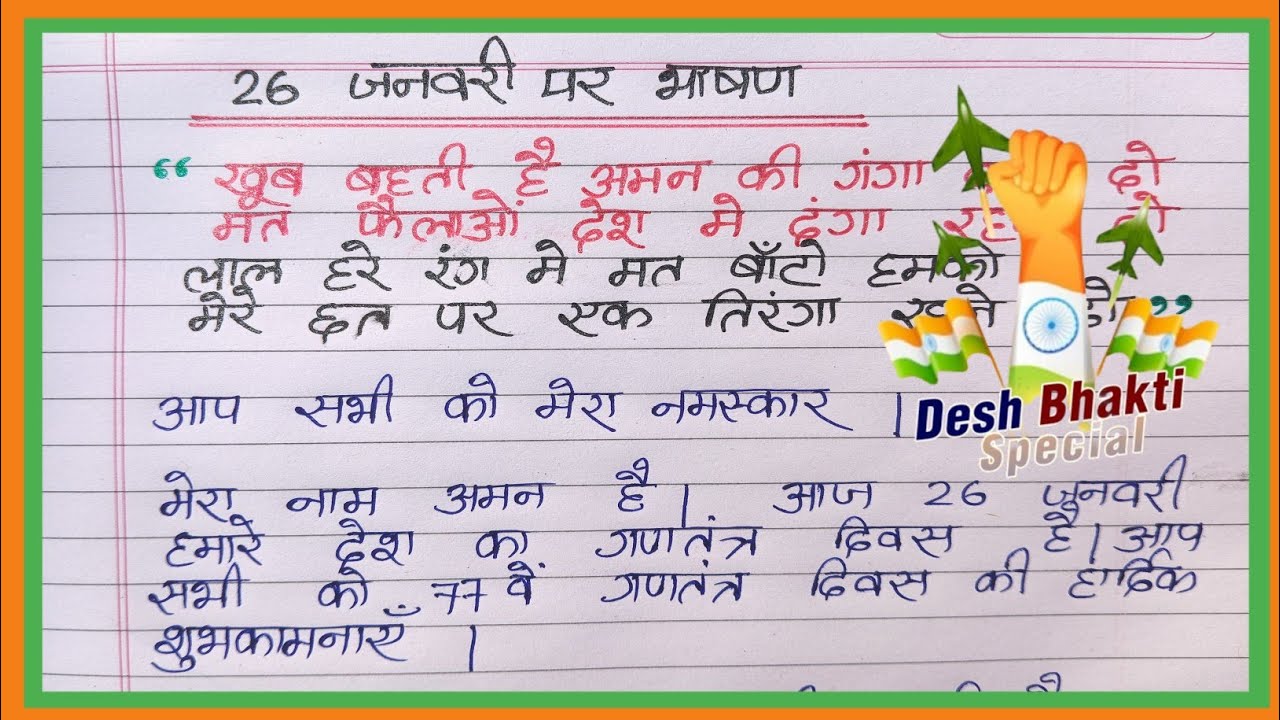 26 जनवरी पर भाषण
“ खूब बहती है अमन की गंगा दो
मत फैलाओं देश मे दंगा
लाल हरे रंग मे मत बाँटो हमको
मेरे छत पर एक तिरंगा ”
आप सभी को मेरा नमस्कार ।
Desh Bhakti
Special
मेरा नाम अमन है। आज 26 जनवरी
हमारे देश का गणतंत्र दिवस है। आप
सभी को 77 वें गणतंत्र दिवस की हार्दिक
शुभकामनाएँ ।